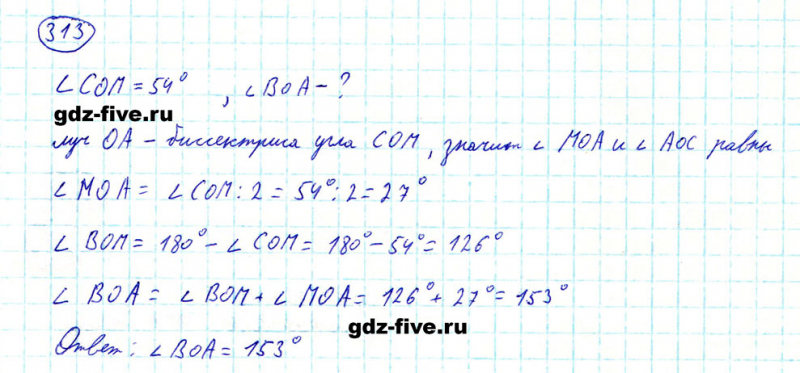 313
∠COM = 54°, ∠BOA – ?
gdz-five.ru
луч OA – биссектриса угла COM, значит ∠ MOA и ∠ AOC равны
∠ MOA = ∠ COM : 2 = 54° : 2 = 27°
∠ BOM = 180° – ∠ COM = 180° – 54° = 126°
∠ BOA = ∠ BOM + ∠ MOA = 126° + 27° = 153°
gdz-five.ru
Ответ: ∠ BOA = 153°